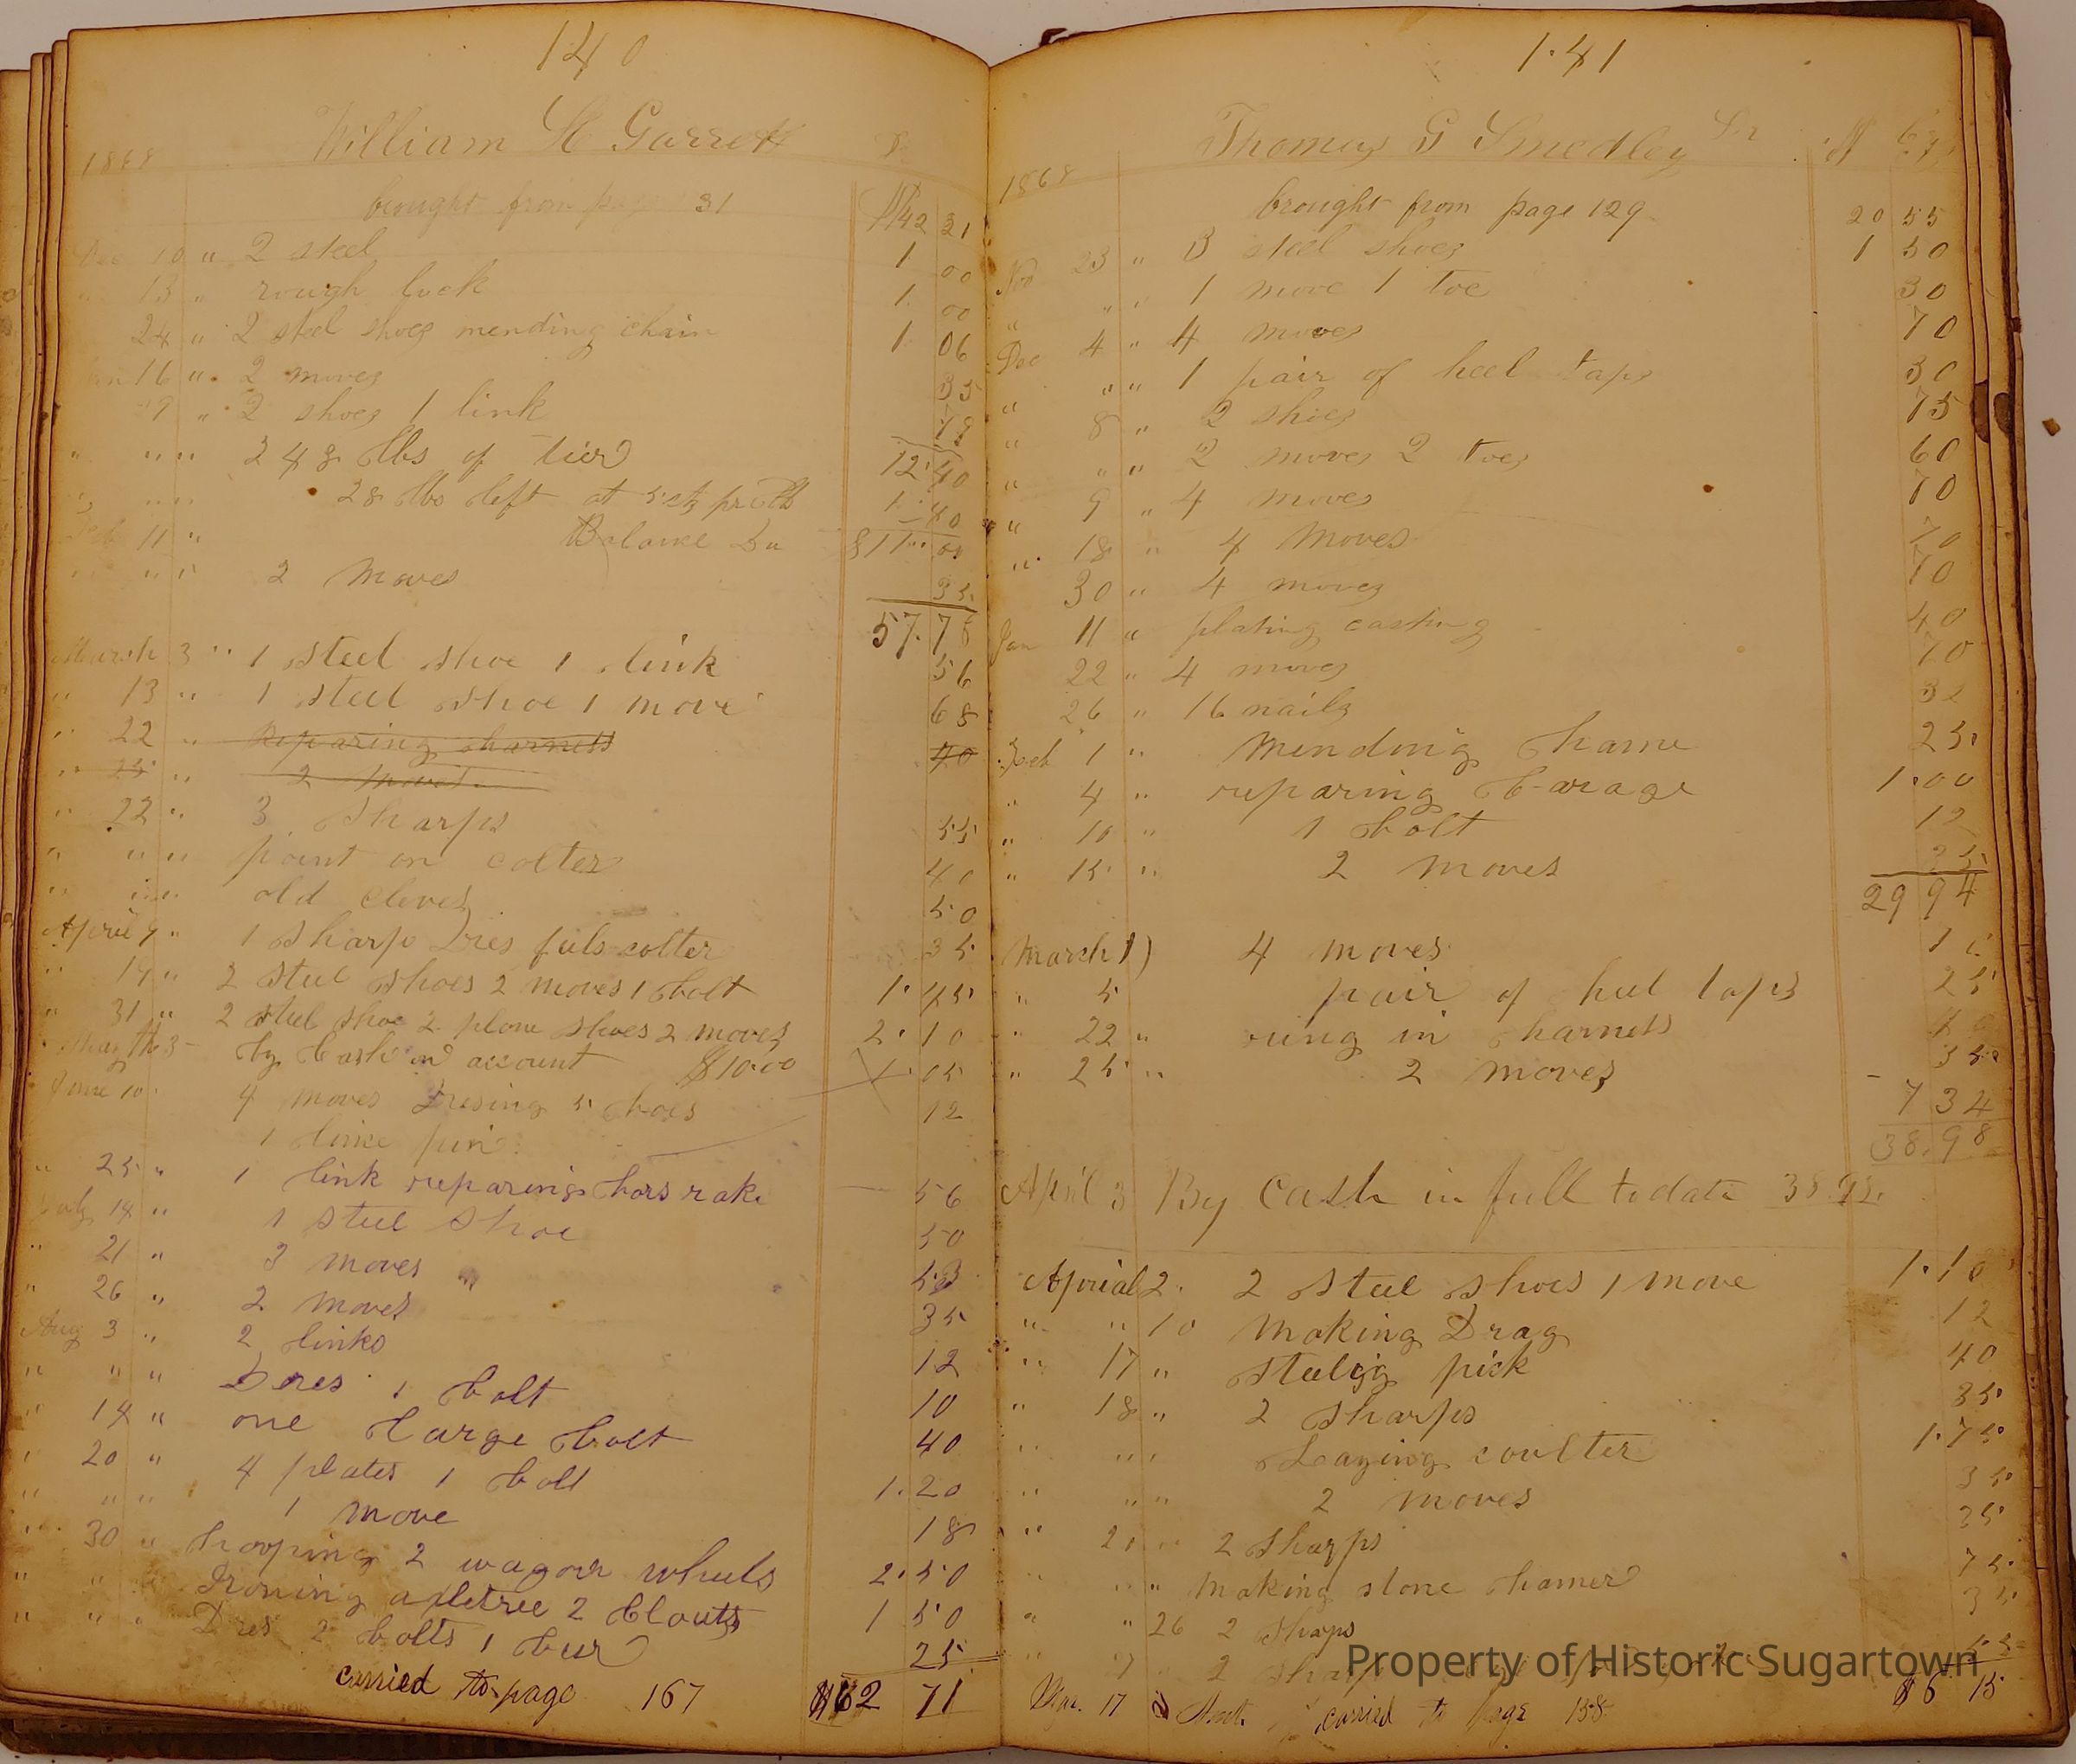 140
William H Garrett Dr
1868
brought from page 131 $42 21
Dec 10 " 2 steel 1 00
" 13 " rough lock 1. 00
24 " 2 steel shoes mending chain 1 06
Jan 16 " 2 moves 35
19 " 2 shoes 1 link
" " " 248 lbs of tier 12.40
" " " 28 lbs left at 5 cts pr lb 1.40
Feb 11 " Balance Du $11.00
" " " 2 moves 35
57.78
March 3 " 1 steel shoe 1 link 56
" 13 " 1 steel shoe 1 move 68
" 22 " Reparing harness 40
" 25 " 2 moves
" 22 " 3 Sharps 55
" " " point on colter 40
" " " old cleves 50
Aprile 9 " 1 Sharp Dres fuls colter 35
" 19 " 2 steel shoes 2 moves 1 bolt 1.45
" 31 " 2 steel shoe 2 plane shoes 2 moves 2.10
May th 3 - by Cash on account $10.00
June 10 4 moves Dresing 5 hoes 1.05
1 line pin 12
" 25 " 1 link reparing hors rake 56
July 14 " 1 steel shoe 50
" 21 " 3 moves 53
" 26 " 2 moves 35
Aug 3 " 2 links 12
" " " Dres 1 bolt 10
" 14 " one large bolt 40
" 20 " 4 plates 1 bolt 1.20
" " " 1 move 18
" 30 " hooping 2 wagon wheels 2.50
" " " Ironing axletree 2 Clouts 1 50
" " " Dres 2 bolts 1 bur 25
carried to page 167 $62 71
141
Thomas G Smedley Dr
1868
brought from page 129 20 55
Nov 23 " 3 steel shoes 1 50
" " " 1 move 1 toe 30
Dec 4 " 4 moves 70
" " " 1 pair of heel taps 30
" 8 " 2 shoes 75
" " " 2 moves 2 toes 60
" 9 " 4 moves 70
" 18 " 4 moves 70
30 " 4 moves 70
Jan 11 " plating casting 40
22 " 4 moves 70
26 " 16 nails 32
Feb 1 " mending hame 25
" 4 " reparing Carage 1.00
" 10 " 1 bolt 12
" 15 " 2 moves 35
29 94
March 1) 4 moves
" 5 pair of heel taps 25
" 22 " ring in harness
" 25 " 2 moves 35
7 34
38.98
April 3 By Cash in full to date 38.98
Aprial 2. 2 steel shoes 1 move 1.10
" " 10 making Drag 12
" 17 " steling pick 40
" 18 " 2 sharps 35
" " " Leaying coulter 1.75
" " " 2 moves 35
" 21 " 2 Sharps 35
" " " making stone hamer 75
" " 26 2 Sharps 35
" " 2 55
Mar. 17 carried to page 158 $6 15
Property of Historic Sugartown